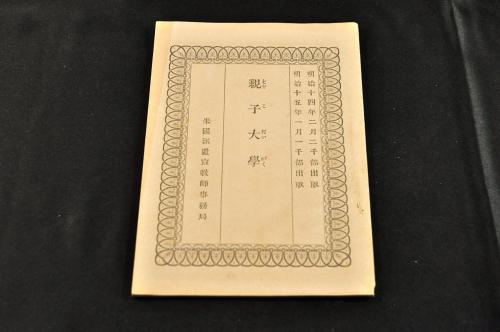 明治十四年二月二千部出版
明治十五年一月一千部出版
親子大學
おやこだいがく
米國派遣宣教師事務局